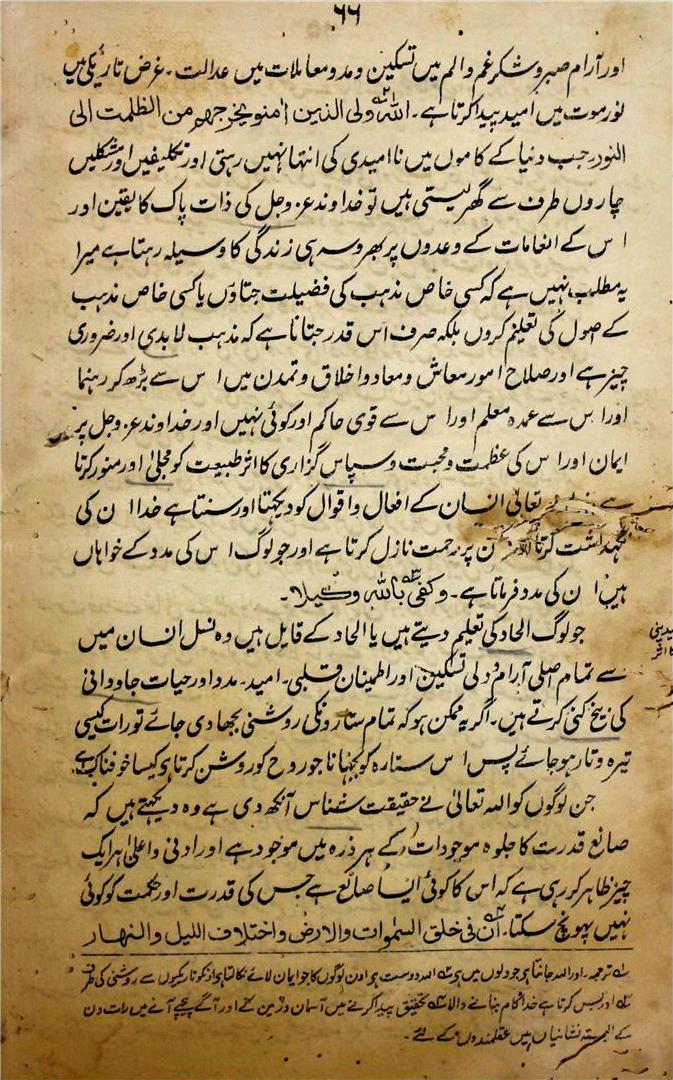 ۶۶
اور آرام صبر و شکر غم و الم میں تسکین و مدد معاملات میں عدالت۔ غرض تاریکی میں
نور موت میں امید پیدا کرتا ہے۔ اللہ ولی الذین اٰمنو یخرجھم من الظلمت الی
النور جب دنیا کے کاموں میں نا امیدی کی انتہا نہیں رہتی اور تکلیفیں اور مشکلیں
چاروں طرف سے گھر لیتی ہیں تو خداوند عز و جل کی ذات پاک کا یقین اور
اس کے انعامات کے وعدوں پر بھروسہ ہی زندگی کا وسیلہ رہتا ہے میرا
یہ مطلب نہیں ہے کہ کسی خاص مذہب کی فضیلت جتاؤں یا کسی خاص مذہب
کے اصول کی تعلیم کروں بلکہ صرف اس قدر جتانا ہے کہ مذہب لابدی اور ضروری
چیز ہے اور صلاح امور معاش و معاد و اخلاق و تمدن میں اس سے بڑھ کر رہنما
اور اس سے عمدہ معلم اور اس سے قوی حاکم اور کوئی نہیں اور خداوند عز و جل پر
ایمان اور اس کی عظمت و محبت و سپاس گزاری کا اثر طبیعت کو مجلیٰ اور منور کرتا
تعالیٰ انسان کے افعال و اقوال کو دیکھتا اور سنتا ہے خدا ان کی
نگہداشت کرتا ن پر رحمت نازل کرتا ہے اور جو لوگ اس کی مدد کے خواہاں
ہیں ان کی مدد فرماتا ہے۔ وکفیٰ باللہ وکیلا۔
جو لوگ الحاد کی تعلیم دیتے ہیں یا الحاد کے قایل ہیں وہ نسل انسان میں
سے تمام اصلی آرام دلی تسکین اور اطمینان قلبی۔ امید۔ مدد اور حیات جاودانی
کی بیخ کنی کرتے ہیں۔ اگر یہ ممکن ہو کہ تمام ستارونکی روشنی بجھا دی جائے تو رات کیسی
تیرہ و تار ہو جائے پس اس ستارہ کو بجھانا جو روح کو روشن کرتا ہو کیسا خوفناک ہے
جن لوگوں کو اللہ تعالیٰ نے حقیقت شناس آنکھ دی ہے وہ دیکھتے ہیں کہ
صانع قدرت کا جلوہ موجودات کے ہر ذرہ میں موجود ہے اور ادنی و اعلیٰ ہر ایک
چیز ظاہر کر رہی ہے کہ اس کا کوئی ایسا صانع ہے جس کی قدرت اور حکمت کو کوئی
نہیں پہونچ سکتا۔ ان فی خلق السمٰوات والارض واختلاف اللیل والنھار
ترجمہ۔ اور اللہ جانتا ہے جو دلوں میں ہے اللہ دوست ہی اون لوگوں کا جو ایمان لائے نکالتا ہی انکو تاریکیوں سے روشنی کی طرف
اور بس کرتا ہے خدا کام بنانے والا تحقیق پیدا کرنے میں آسمان و زمین کے اور آگے پیچھے آنے میں رات دن
کے البتہ نشانیاں ہیں عقلمندوں کے لئے۔